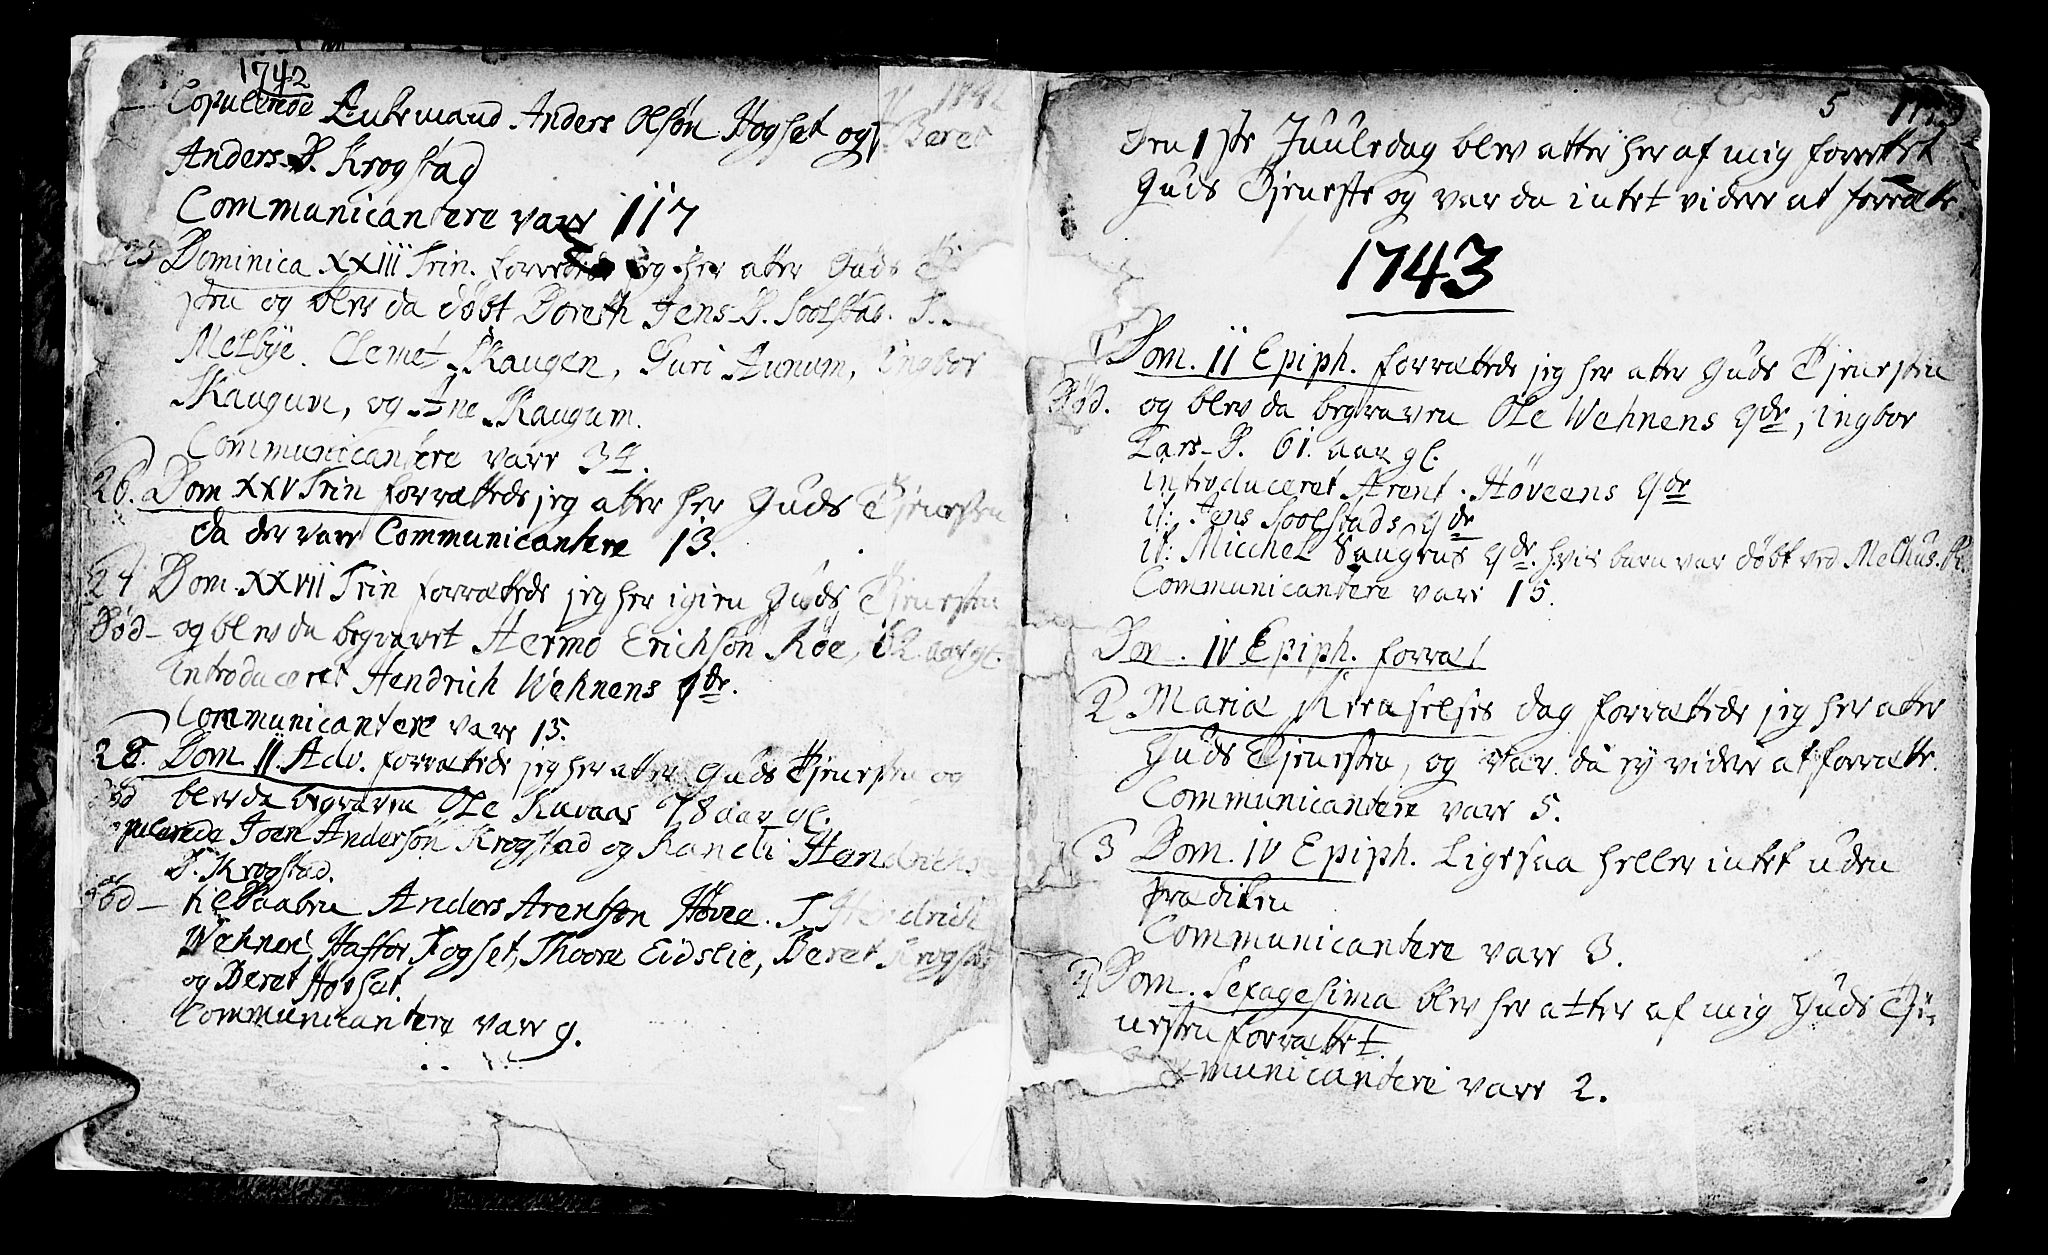 1742
Copulerede Enkemand Anders Olsøn Hogset og Beret
Anders-D. Krogstad
Communicantere vare 117
25 Dominica XXIII Trin. forrettede jeg her atter Guds
sten og blev da døbt Doreth Jens-D. Soolstad. T.
Melbye. Clemet Skaugen, Guri Aunum, Ingbor
Skaugum, og Ane Skaugum.
Communicantere vare 34.
26. Dom XXV Trin forrættede jeg atter her Guds Tienesten
da der vare Communicantere 13.
27 Dom. XXVII Trin forrættede jeg her igien Guds Tienesten
Død - og blev da begravet Hermo Erichsøn Roe, aar gl.
Introduceret Hendrich Wehnens qde.
Communicantere vare 15.
28. Dom. II. Adv. forrættede jeg her atter Guds Tienesten og
Død blev da begraven Ole Kavaas 78 aar gl.
pulerede Joen Anderson Krogstad og Randi Hendrichs
D. Krogstad.
Død - til Daaben Anders Arentson Høvee. T. Hendrich
Wehnen, Haffor Fogset, Thoore Eidslie, Beret Krogstad
og Beret Hovset.
Communicantere vare 9.
1742
5 1743
Den 1ste Juuledag blev atter her af mig forrettet
Guds Tieneste og var da intet videre at forrætte.
1743
1 Dom. II Epiph. forrættede jeg her atter Guds Tienesten
Død. og blev da begraven Ole Wehnens qde, Ingbor
Lars-D. 61. aar gl.
Introduceret Arent Høveens qde
it: Jens Soolstads qde
it: Micchel Saugrus qde. hvis barn var døbt ved Melhus. K.
Communicantere vare 15.
Dom. IV Epiph. forræt
2. Mariæ Renselses dag forrættede jeg her atter
Guds Tienesten, og var da ey videre at forrætte.
Communicantere vare 5.
3 Dom. IV Epiph. Ligesaa heller intet uden
prædiken
Communicantere vare 3.
4 Dom. Sexagesima blev her atter af mig Guds Tie-
nesten forrættet.
municantere vare 2.